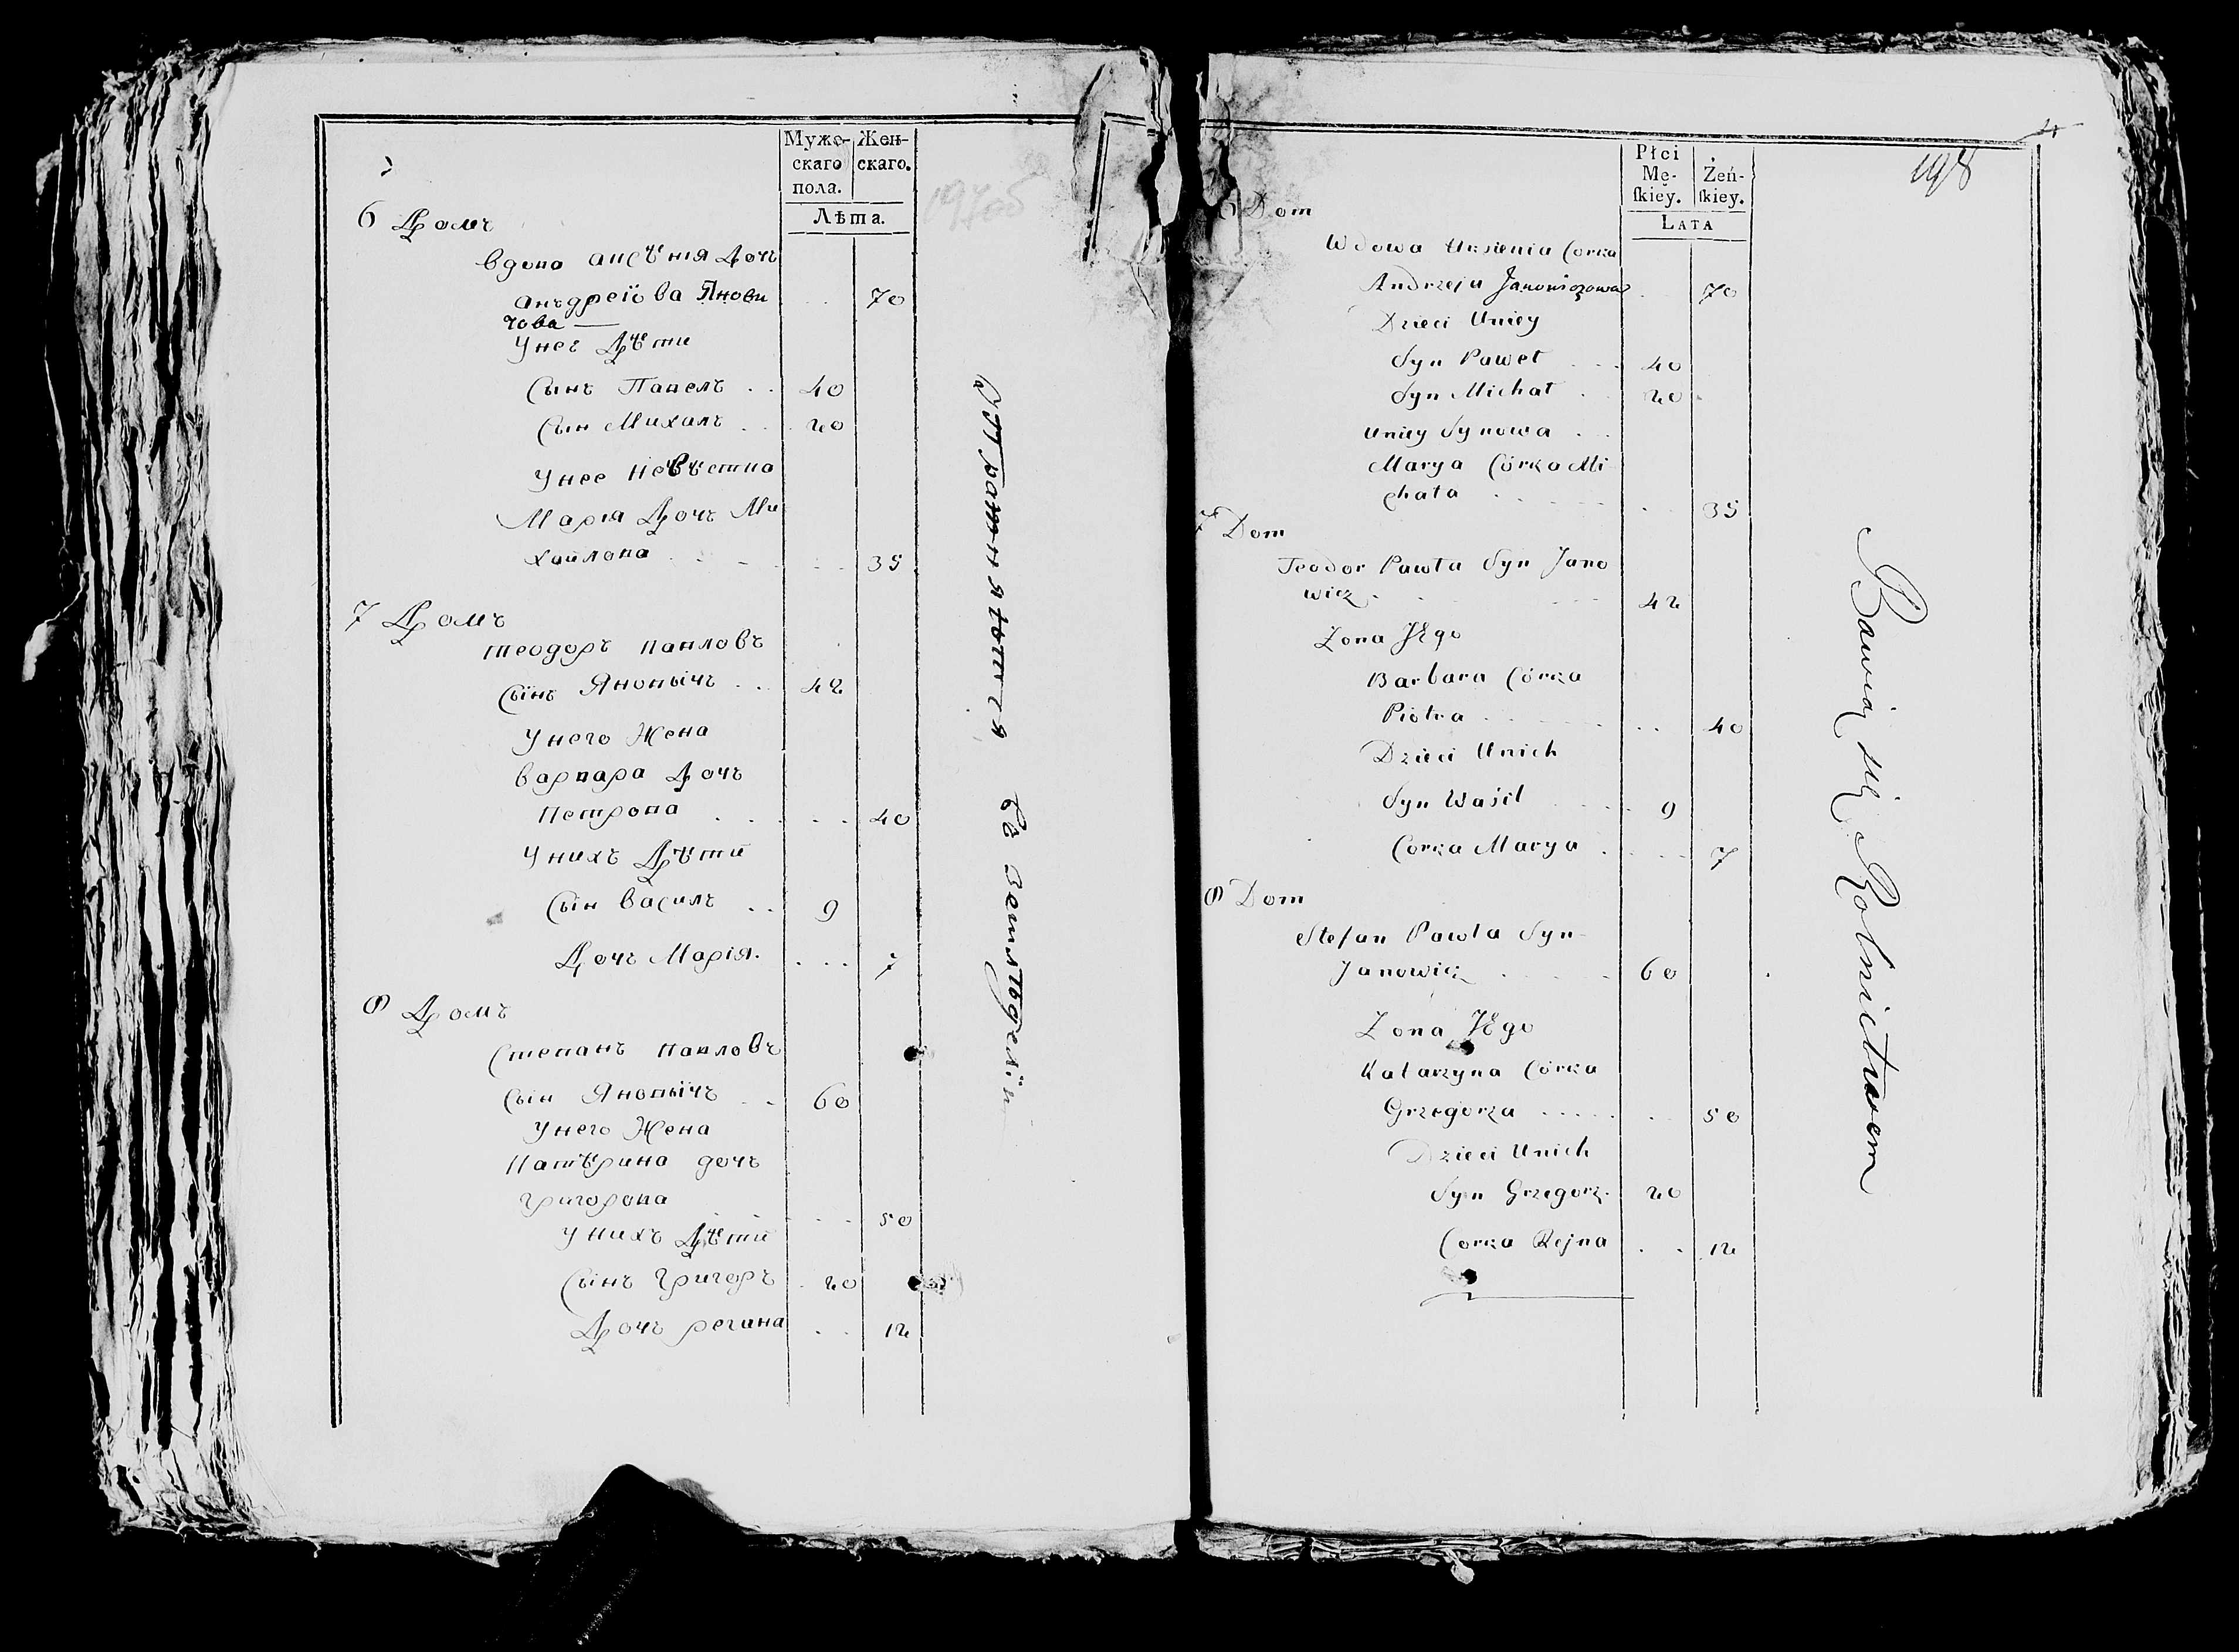 Муже-
скаго
пола.
Жен-
скаго.
Лѣта.
197об
6 Домъ
вдова аксѣнія Дочь
анъдреіова Янови
чова —
У нее Дѣти
Сынъ Павелъ . . 40
Сын Михалъ . . 20
У нее невѣстка
Марія Дочь Ми
хайлова . . . . 35
7 Домъ
теодоръ павловъ
Сынъ Яновычъ . . 42
У него Жена
варвара Дочь
петрова . . . . 40
У нихъ Дѣти
Сын василъ . . 9
Дочь Марія. . . . 7
8 Домъ
Степанъ павловъ
Сын Яновичъ . . 60
У него Жена
катѣрина дочь
григорова
. . . . 50
У нихъ Дѣти
Сынъ григоръ . 20
Дочь регина . . 12
упражняются въ земледеліи
4
198
Płci
Mę-
ſkiey.
Żeń-
ſkiey.
LATA
6 Dom
Wdowa Uksienia Corka
Andrzeja Janowiczowa . 70
70
Dzieci Uniey
Syn Paweł . . . 40
Syn Michał . 20
Uniey Synowa . .
Marya Córka Mi
chała . . . . . 35
7 Dom
Teodor Pawła Syn Jano
wicz . . . . 42
Zona JEgo
Barbara Córka
Piotra . . . . . . 40
Dzieci Unich
Syn Waśil . . . . 9
Corka Marya . . . . 7
8 Dom
Stefan Pawła Syn
Janowicz . . . . . 60
Zona JEgo
Katarzyna Córka
Grzegorza . . . . . . 50
Dzieci Unich
Syn Grzegorz. 20
Corka Rejna . . 12
Bawią się Rolnictwem